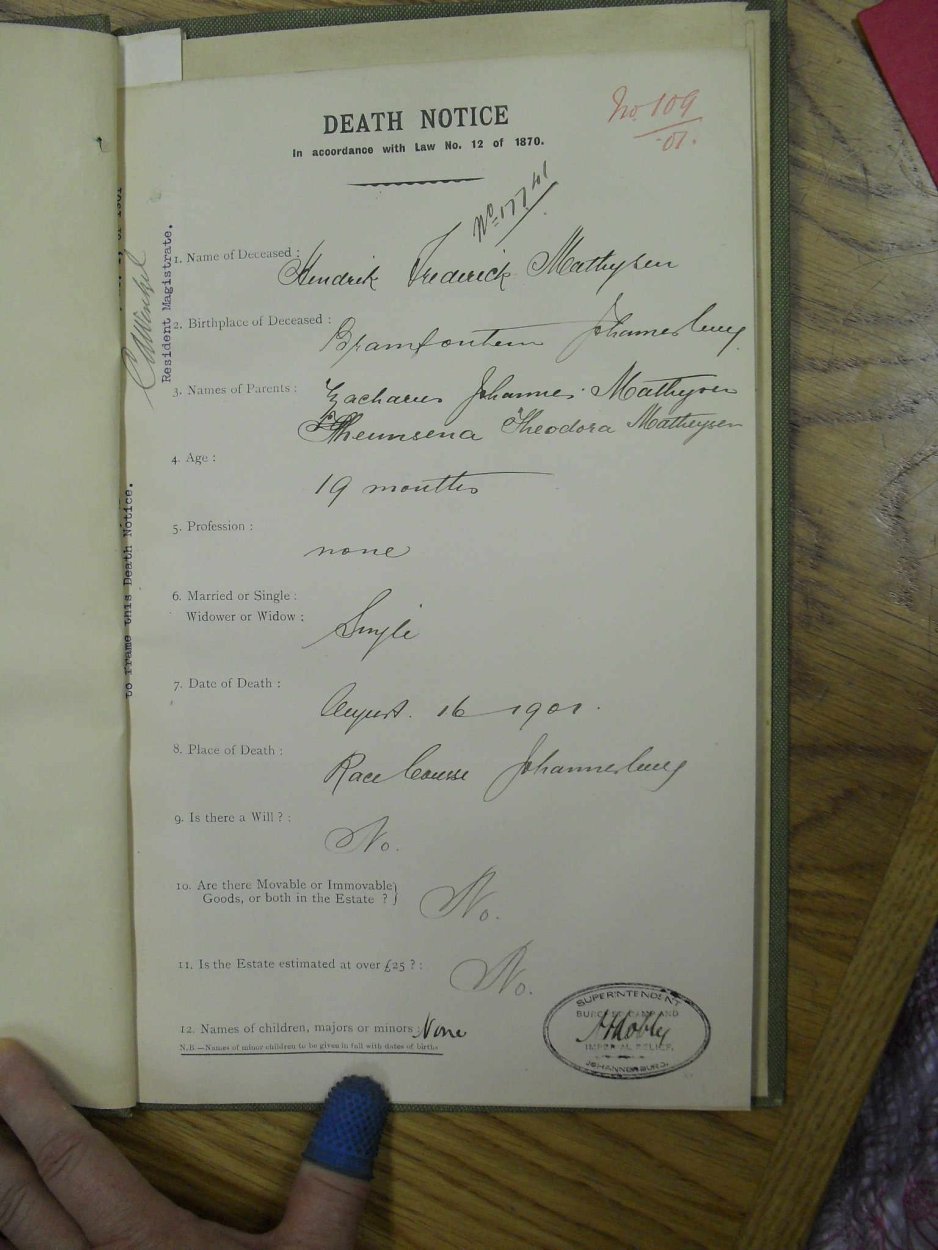 DEATH NOTICE
In accordance with Law No. 12 of 1870.
No. 109
01.
No 17741
1. Name of Deceased :
Hendrik Frederick Matheysen
2. Birthplace of Deceased :
Bramfontein Johannesburg
3. Names of Parents :
Zacharus Johannes Matheysen
Theunsena Theodora Matheysen
4. Age :
19 months
5. Profession :
none
6. Married or Single :
Widower or Widow :
Single
7. Date of Death :
August. 16 1901.
8. Place of Death :
Race Course Johannesburg
9. Is there a Will ? :
No.
10. Are there Movable or Immovable
Goods, or both in the Estate ?
No.
11. Is the Estate estimated at over £25 ? :
No.
12. Names of children, majors or minors : None
N.B.—Names of minor children to be given in full with dates of births
SUPERINTENDENT
BURGHER CAMP AND
IMPERIAL RELIEF,
JOHANNESBURG.
Resident Magistrate.
to frame this Death Notice.